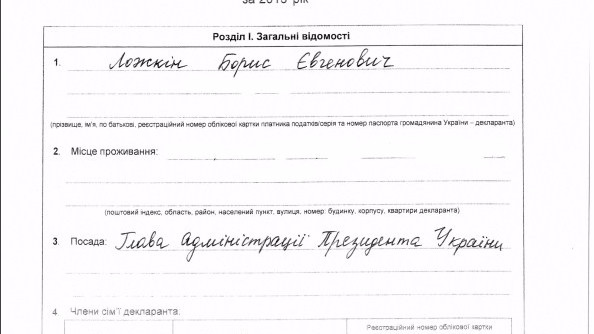 за 2013 рік
Розділ I. Загальні відомості
1. Ложкін Борис Євгенович
(прізвище, ім'я, по батькові, реєстраційний номер облікової картки платника податків/серія та номер паспорта громадянина України – декларанта)
2. Місце проживання:
(поштовий індекс, область, район, населений пункт, вулиця, номер: будинку, корпусу, квартири декларанта)
3. Посада: Глава Адміністрації Президента України
4. Члени сім'ї декларанта:
Реєстраційний номер облікової картки